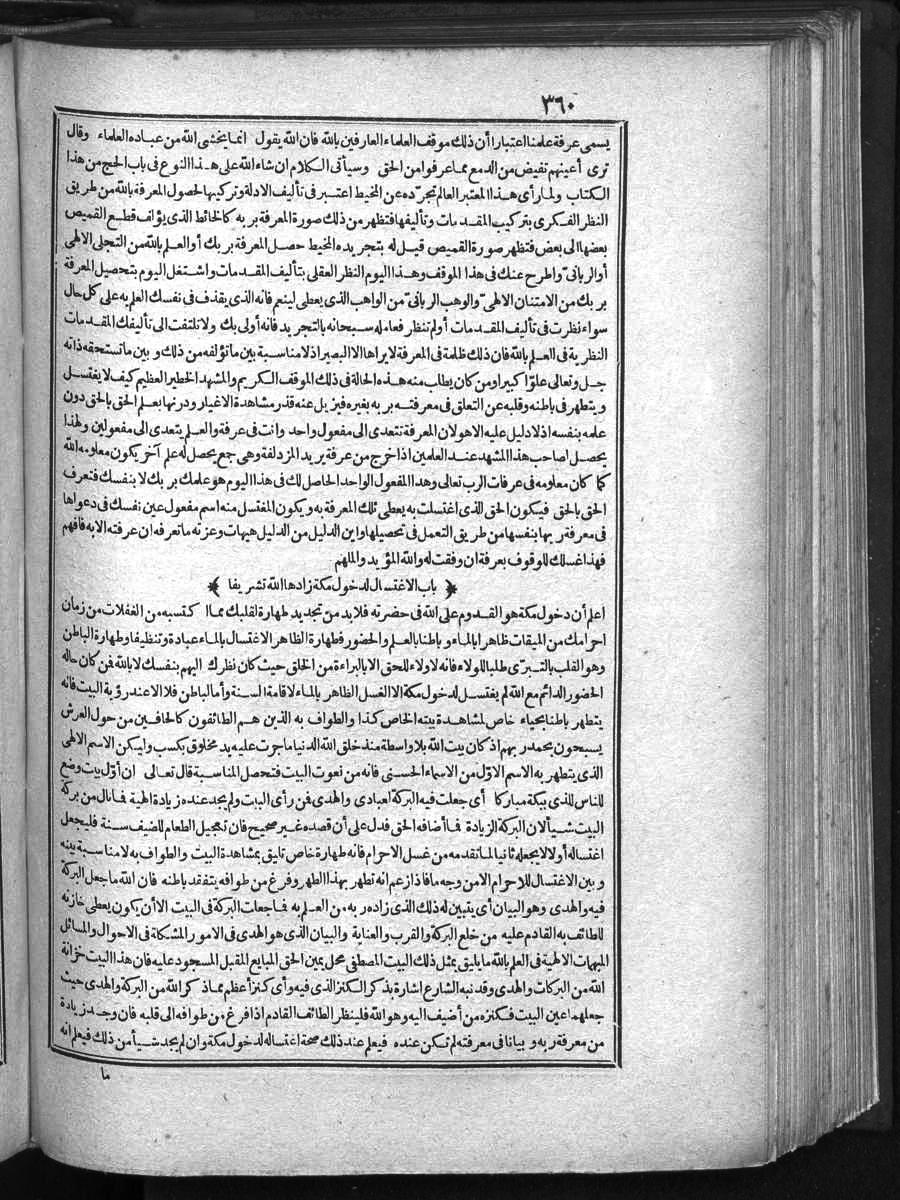 ٣٦٠
يسمى عرفة علمنا اعتبارا أن ذلك موقف العلماء العارفين بالله فان الله يقول انما يخشى الله من عباده العلماء وقال
ترى أعينهم تفيض من الدمع مما عرفوا من الحق وسيأتى الكلام ان شاء الله على هذا النوع فى باب الحج من هذا
الكتاب ولما رأى هذا المعتبر العالم تجرّده عن المخيط اعتبر فى تأليف الادلة وتركيبها لحصول المعرفة بالله من طريق
النظر الفكرى بتركيب المقدمات وتأليفها فتظهر من ذلك صورة المعرفة بربه كالخائط الذى يؤلف قطع القميص
بعضها الى بعض فتظهر صورة القميص قيل له بتجريده المخيط حصل المعرفة بربك أو العلم بالله من التجلى الالهى
أو الربانىّ واطرح عنك فى هذا الموقف وهذا اليوم النظر العقلى بتأليف المقدمات واشتغل اليوم بتحصيل المعرفة
بربك من الامتنان الالهىّ والوهب الربانىّ من الواهب الذى يعطى لينعم فانه الذى يقذف فى نفسك العلم به على كل حال
سواء نظرت فى تأليف المقدمات أولم تنظر فعامله سبحانه بالتجريد فانه أولى بك ولا تلتفت الى تأليفك المقدمات
النظرية فى العلم بالله فان ذلك ظلمة فى المعرفة لا يراها الا البصير اذ لا مناسبة بين ما تؤلفه من ذلك و بين ما تستحقه ذاته
جل وتعالى علوّا كبيرا ومن كان يطلب منه هذه الحالة فى ذلك الموقف الكريم والمشهد الخطير العظيم كيف لا يغتسل
ويتطهر فى باطنه وقلبه عن التعلق فى معرفته بربه بغيره فيزيل عنه قذر مشاهدة الاغيار ودرنها بعلم الحق بالحق دون
علمه بنفسه اذ لا دليل عليه الا هو لان المعرفة تتعدى الى مفعول واحد وانت فى عرفة والعلم يتعدى الى مفعولين ولهذا
يحصل لصاحب هذا المشهد عند العلمين اذا خرج من عرفة يريد المزدلفة وهى جمع يحصل له علم آخر يكون معلومه الله
كما كان معلومه فى عرفات الرب تعالى وهذا المفعول الواحد الحاصل لك فى هذا اليوم هو علمك بربك لا بنفسك فتعرف
الحق بالحق فيكون الحق الذى اغتسلت به يعطى تلك المعرفة به ويكون المغتسل منه اسم مفعول عين نفسك فى دعواها
فى معرفة ربها بنفسها من طريق التعمل فى تحصيلها واين الدليل من الدليل هيهات وعزته ما تعرفه ان عرفته الا به فافهم
فهذا غسلك للوقوف بعرفة ان وفقت له والله المؤيد والملهم
﴿ باب الاغتسال لدخول مكة زادها الله تشريفا ﴾
اعلم أن دخول مكة هو القدوم على الله فى حضرته فلا بد من تجديد طهارة لقلبك مما اكتسبه من الغفلات من زمان
احرامك من الميقات ظاهرا بالماء و باطنا بالعلم والحضور فطهارة الظاهر الاغتسال بالماء عبادة وتنظيفا وطهارة الباطن
وهو القلب بالتبرّى طلبا للولاء فانه لا ولاء للحق الا بالبراءة من الخلق حيث كان نظرك اليهم بنفسك لا بالله فمن كان حاله
الحضور الدائم مع الله لم يغتسل لدخول مكة الا الغسل الظاهر بالماء لاقامة السنة وأما الباطن فلا الا عند رؤية البيت فانه
يتطهر باطنا بحياء خاص لمشاهدة بيته الخاص كذا والطواف به الذين هم الطائفون كالحافين من حول العرش
يسبحون بحمد ربهم اذ كان بيت الله بلا واسطة منذ خلق الله الدنيا ما جرت عليه يد مخلوق بكسب وليكن الاسم الالهى
الذى يتطهر به الاسم الاوّل من الاسماء الحسنى فانه من نعوت البيت فتحصل المناسبة قال تعالى ان أوّل بيت وضع
للناس للذى ببكة مباركا أى جعلت فيه البركة لعبادى والهدى فمن رأى البيت ولم يجد عنده زيادة الهية فما نال من بركة
البيت شيأ لان البركة الزيادة فما أضافه الحق فدل على أن قصده غير صحيح فان تعجيل الطعام للضيف سنة فليجعل
اغتساله أولا لا يجعله ثانيا لما تقدمه من غسل الاحرام فانه طهارة خاص تليق بمشاهدة البيت والطواف به لا مناسبة بينه
و بين الاغتسال للاحرام الا من وجه ما فاذا زعم انه تطهر بهذا الطهر وفرغ من طوافه يتفقد باطنه فان الله ما جعل البركة
فيه والهدى وهو البيان أى يتبين له ذلك الذى زاده ربه من العلم به فما جعلت البركة فى البيت الا أن يكون يعطى خازنه
للطائف به القادم عليه من خلع البركة والقرب والعناية والبيان الذى هو الهدى فى الامور المشكلة فى الاحوال والمسائل
المبهمات الالهية فى العلم بالله ما يليق بمثل ذلك البيت المصطفى محل يمين الحق المبايع المقبل المسجود عليه فان هذا البيت خزانة
الله من البركات والهدى وقد نبه الشارع اشارة بذكر الكنز الذى فيه وأى كنز أعظم مما ذكر الله من البركة والهدى حيث
جعلهما عين البيت فكنزه من أضيف اليه وهو الله فلينظر الطائف القادم اذا فرغ من طوافه الى قلبه فان وجد زيادة
من معرفة ربه و بيانا فى معرفته لم تكن عنده فيعلم عند ذلك صحة اغتساله لدخول مكة وان لم يجد شيأ من ذلك فيعلم انه
ما